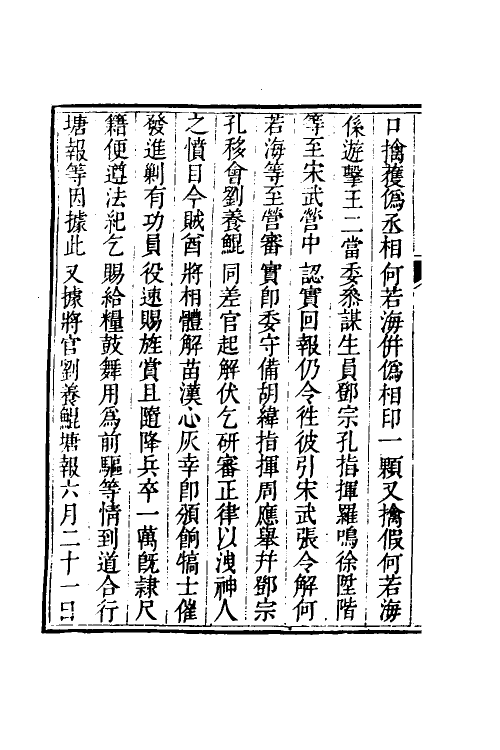 口擒獲僞丞相何若海併僞相印一顆又擒假何若海
係遊擊王二當委叅謀生員鄧宗孔指揮羅鳴徐陞階
等至宋武營中認實回報仍令徃彼引宋武張令解何
若海等至營審實卽委守備胡緯指揮周應舉幷鄧宗
孔移會劉養鯤同差官起解伏乞研審正律以洩神人
之憤目今賊酋將相體解苗漢心灰幸卽頒餉犒士催
發進剿有功員役速賜旌賞且隨降兵卒一萬旣隷尺
籍便遵法紀乞賜給糧鼓舞用爲前驅等情到道合行
塘報等因據此又據將官劉養鯤塘報六月二十一日